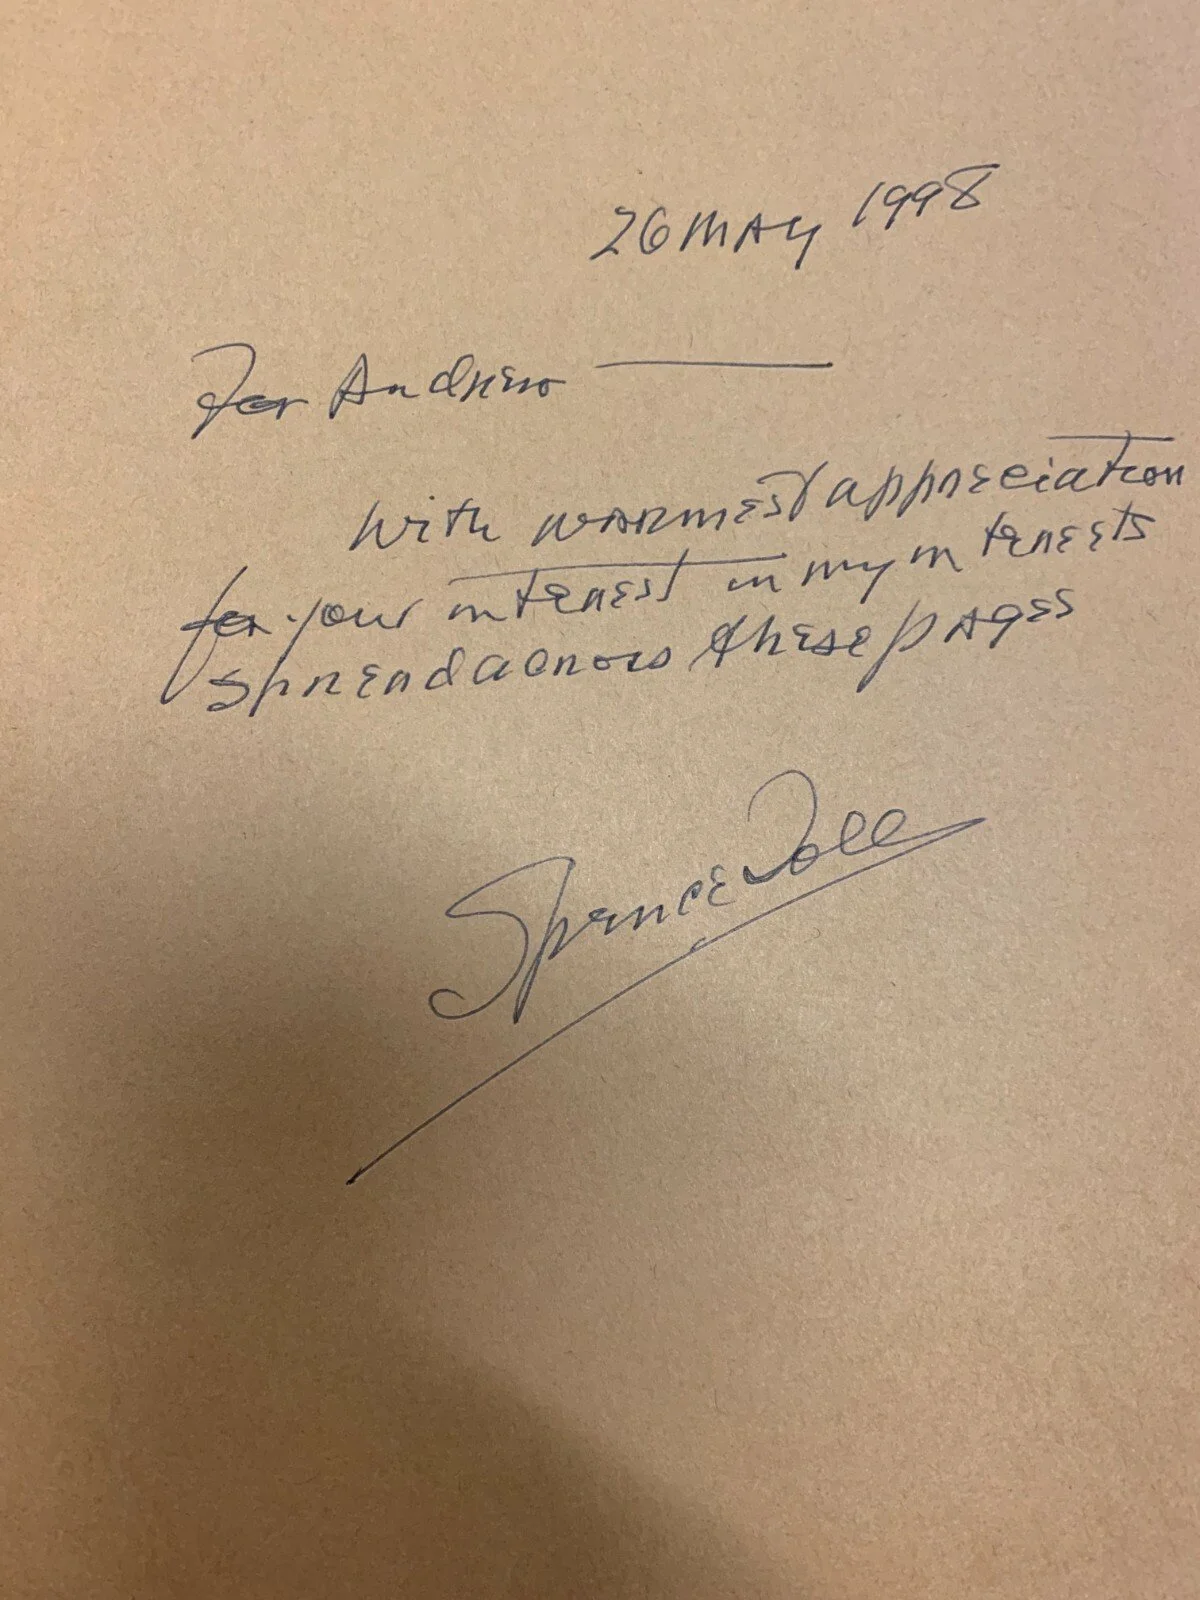 26 MAY 1998
For Andrew —
With warmest appreciation
for your interest in my interests
spread across these pages
Spence